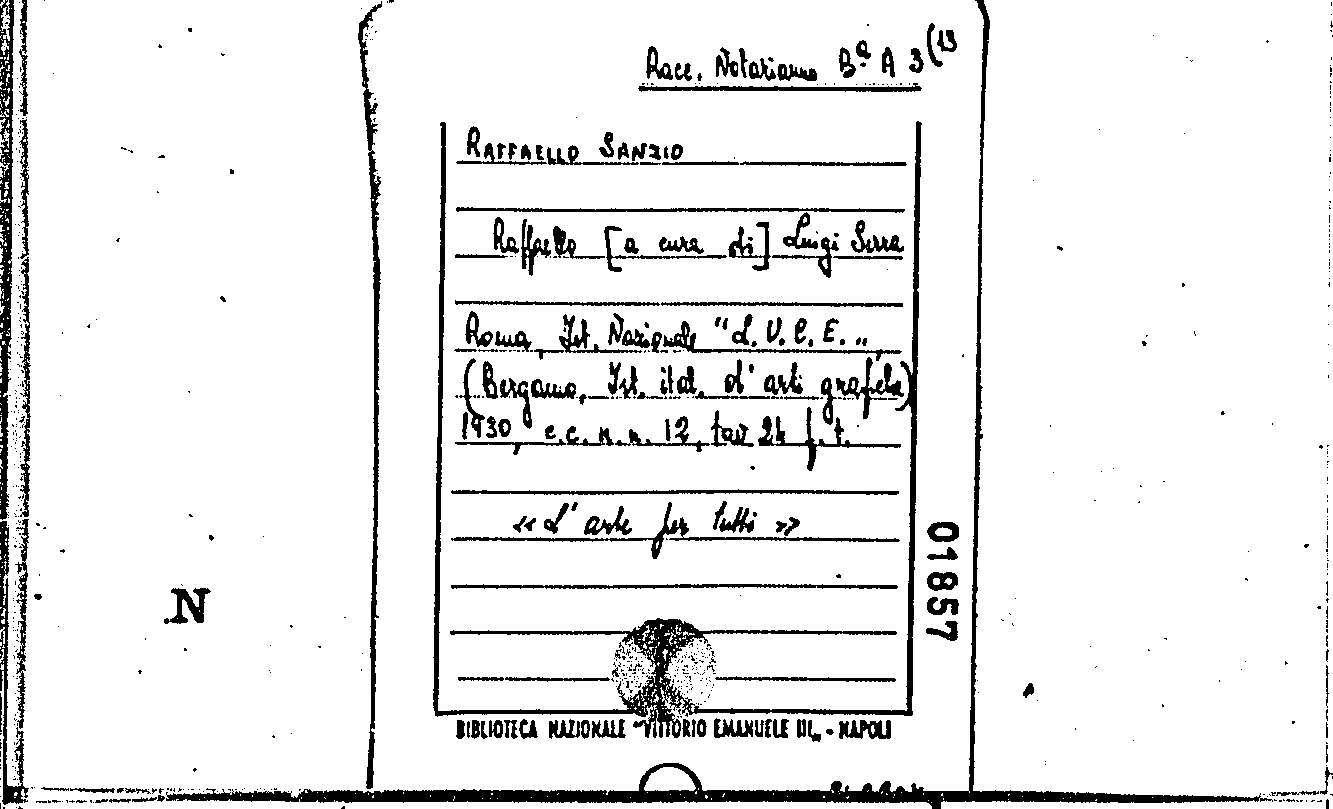 Racc. Notarianno Bª A 3(13
RAFFAELLO SANZIO
Raffaello [a cura di] Luigi Serra
Roma, Ist. Nazionale "L. U. C. E.",
(Bergamo, Ist. ital. d'arti grafiche)
1930, c.c. n.n. 12, tav 24 f. t.
«L'arte per tutti»
01857
N
BIBLIOTECA NAZIONALE "VITTORIO EMANUELE III„ - NAPOLI